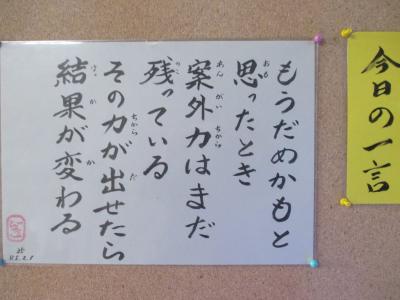 今日の一言
もうだめかもと
思ったとき
案外力はまだ
残っている
その力が出せたら
結果が変わる